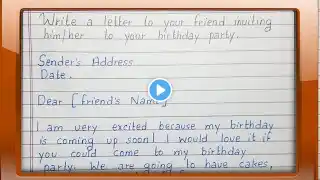 Write a letter to your friend inviting
him/her to your birthday party.
Sender's Address
Date.
Dear [friend's Name]
I am very excited because my birthday
is coming up soon! I would love it if
you could come to my birthday
party. We are going to have cakes,